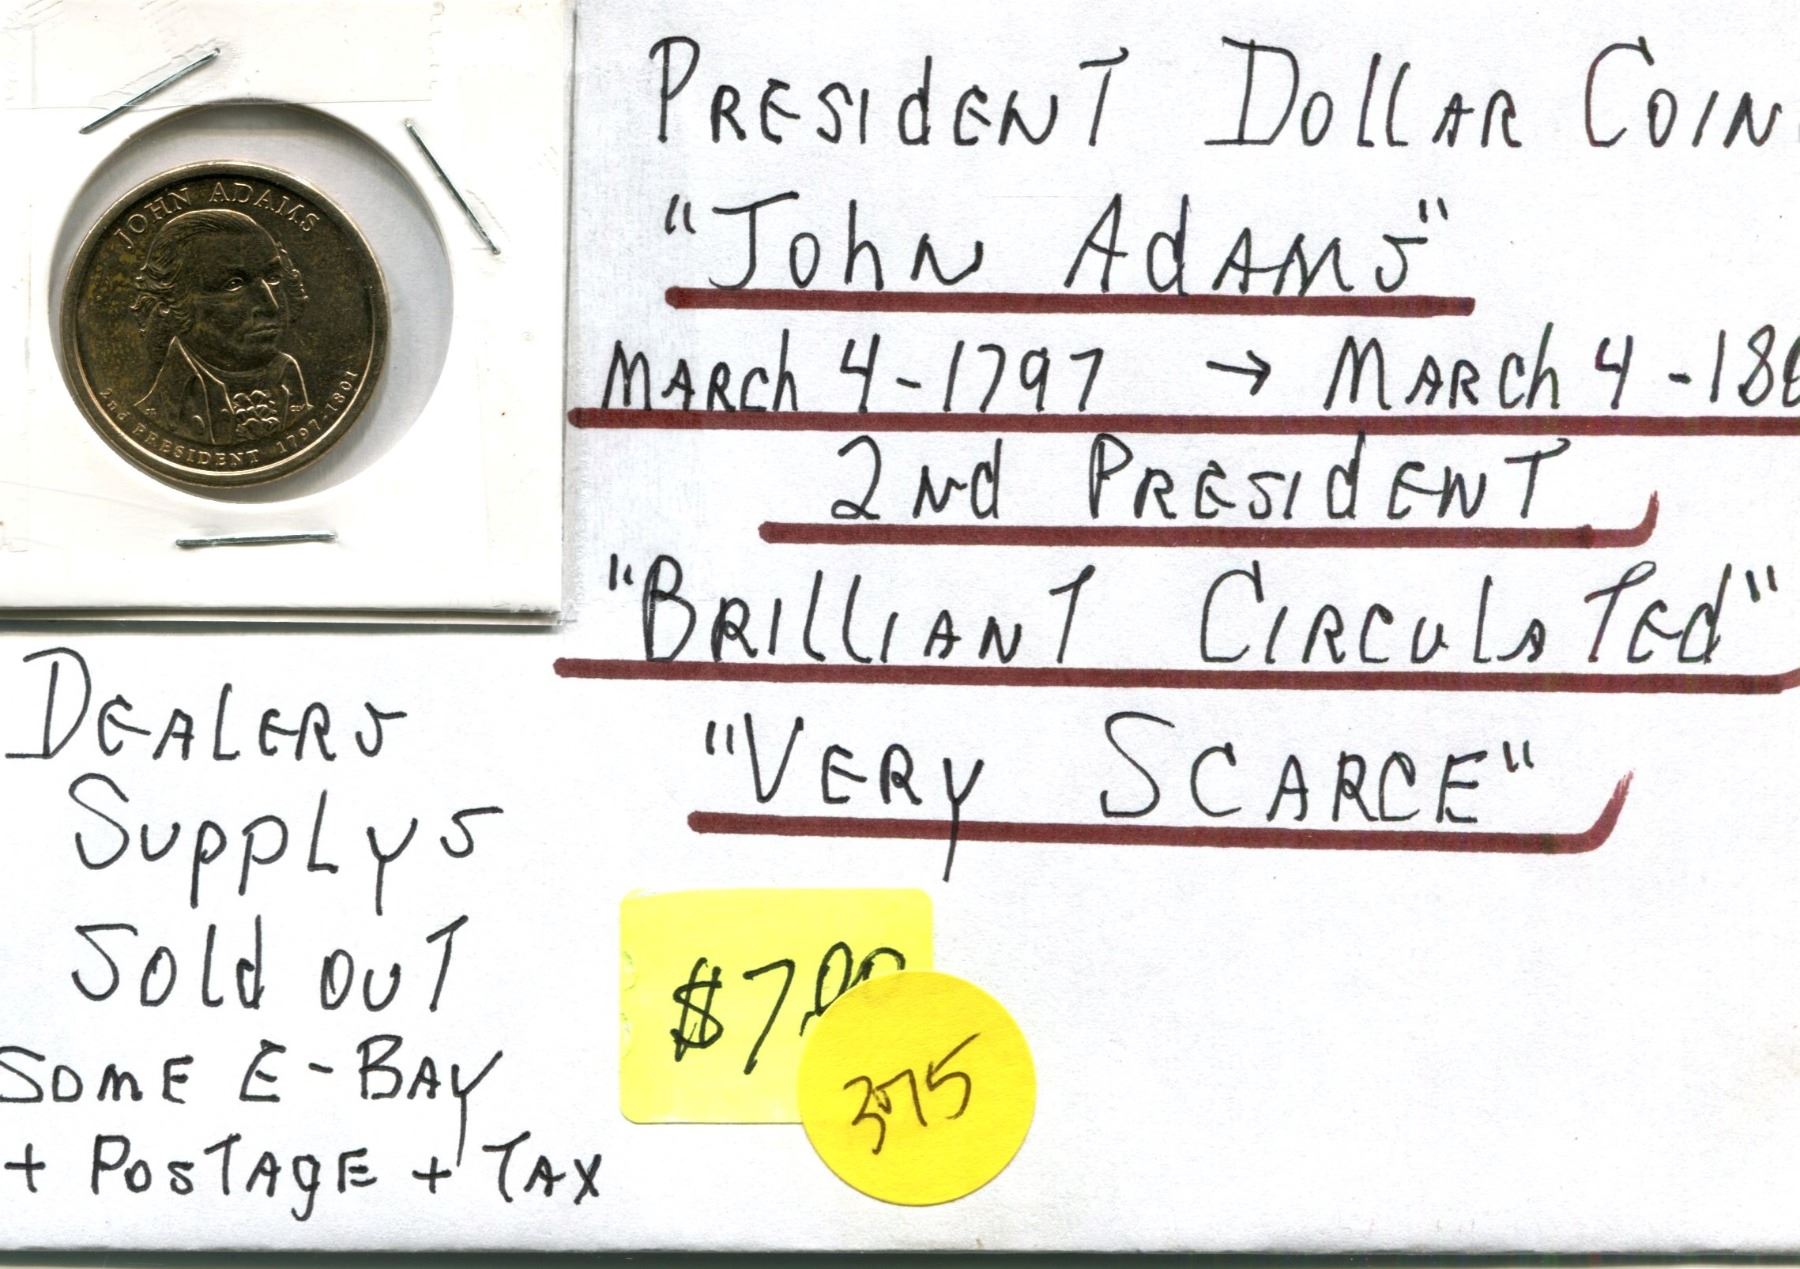 JOHN ADAMS
2nd PRESIDENT 1797-1801
PRESIDENT DOLLAR COIN
"JOHN ADAMS"
MARCH 4-1797 → MARCH 4-180
2ND PRESIDENT
"BRILLIANT CIRCULATED"
"VERY SCARCE"
DEALERS
SUPPLYS
SOLD OUT
SOME E-BAY
+ POSTAGE + TAX
$7.00
375